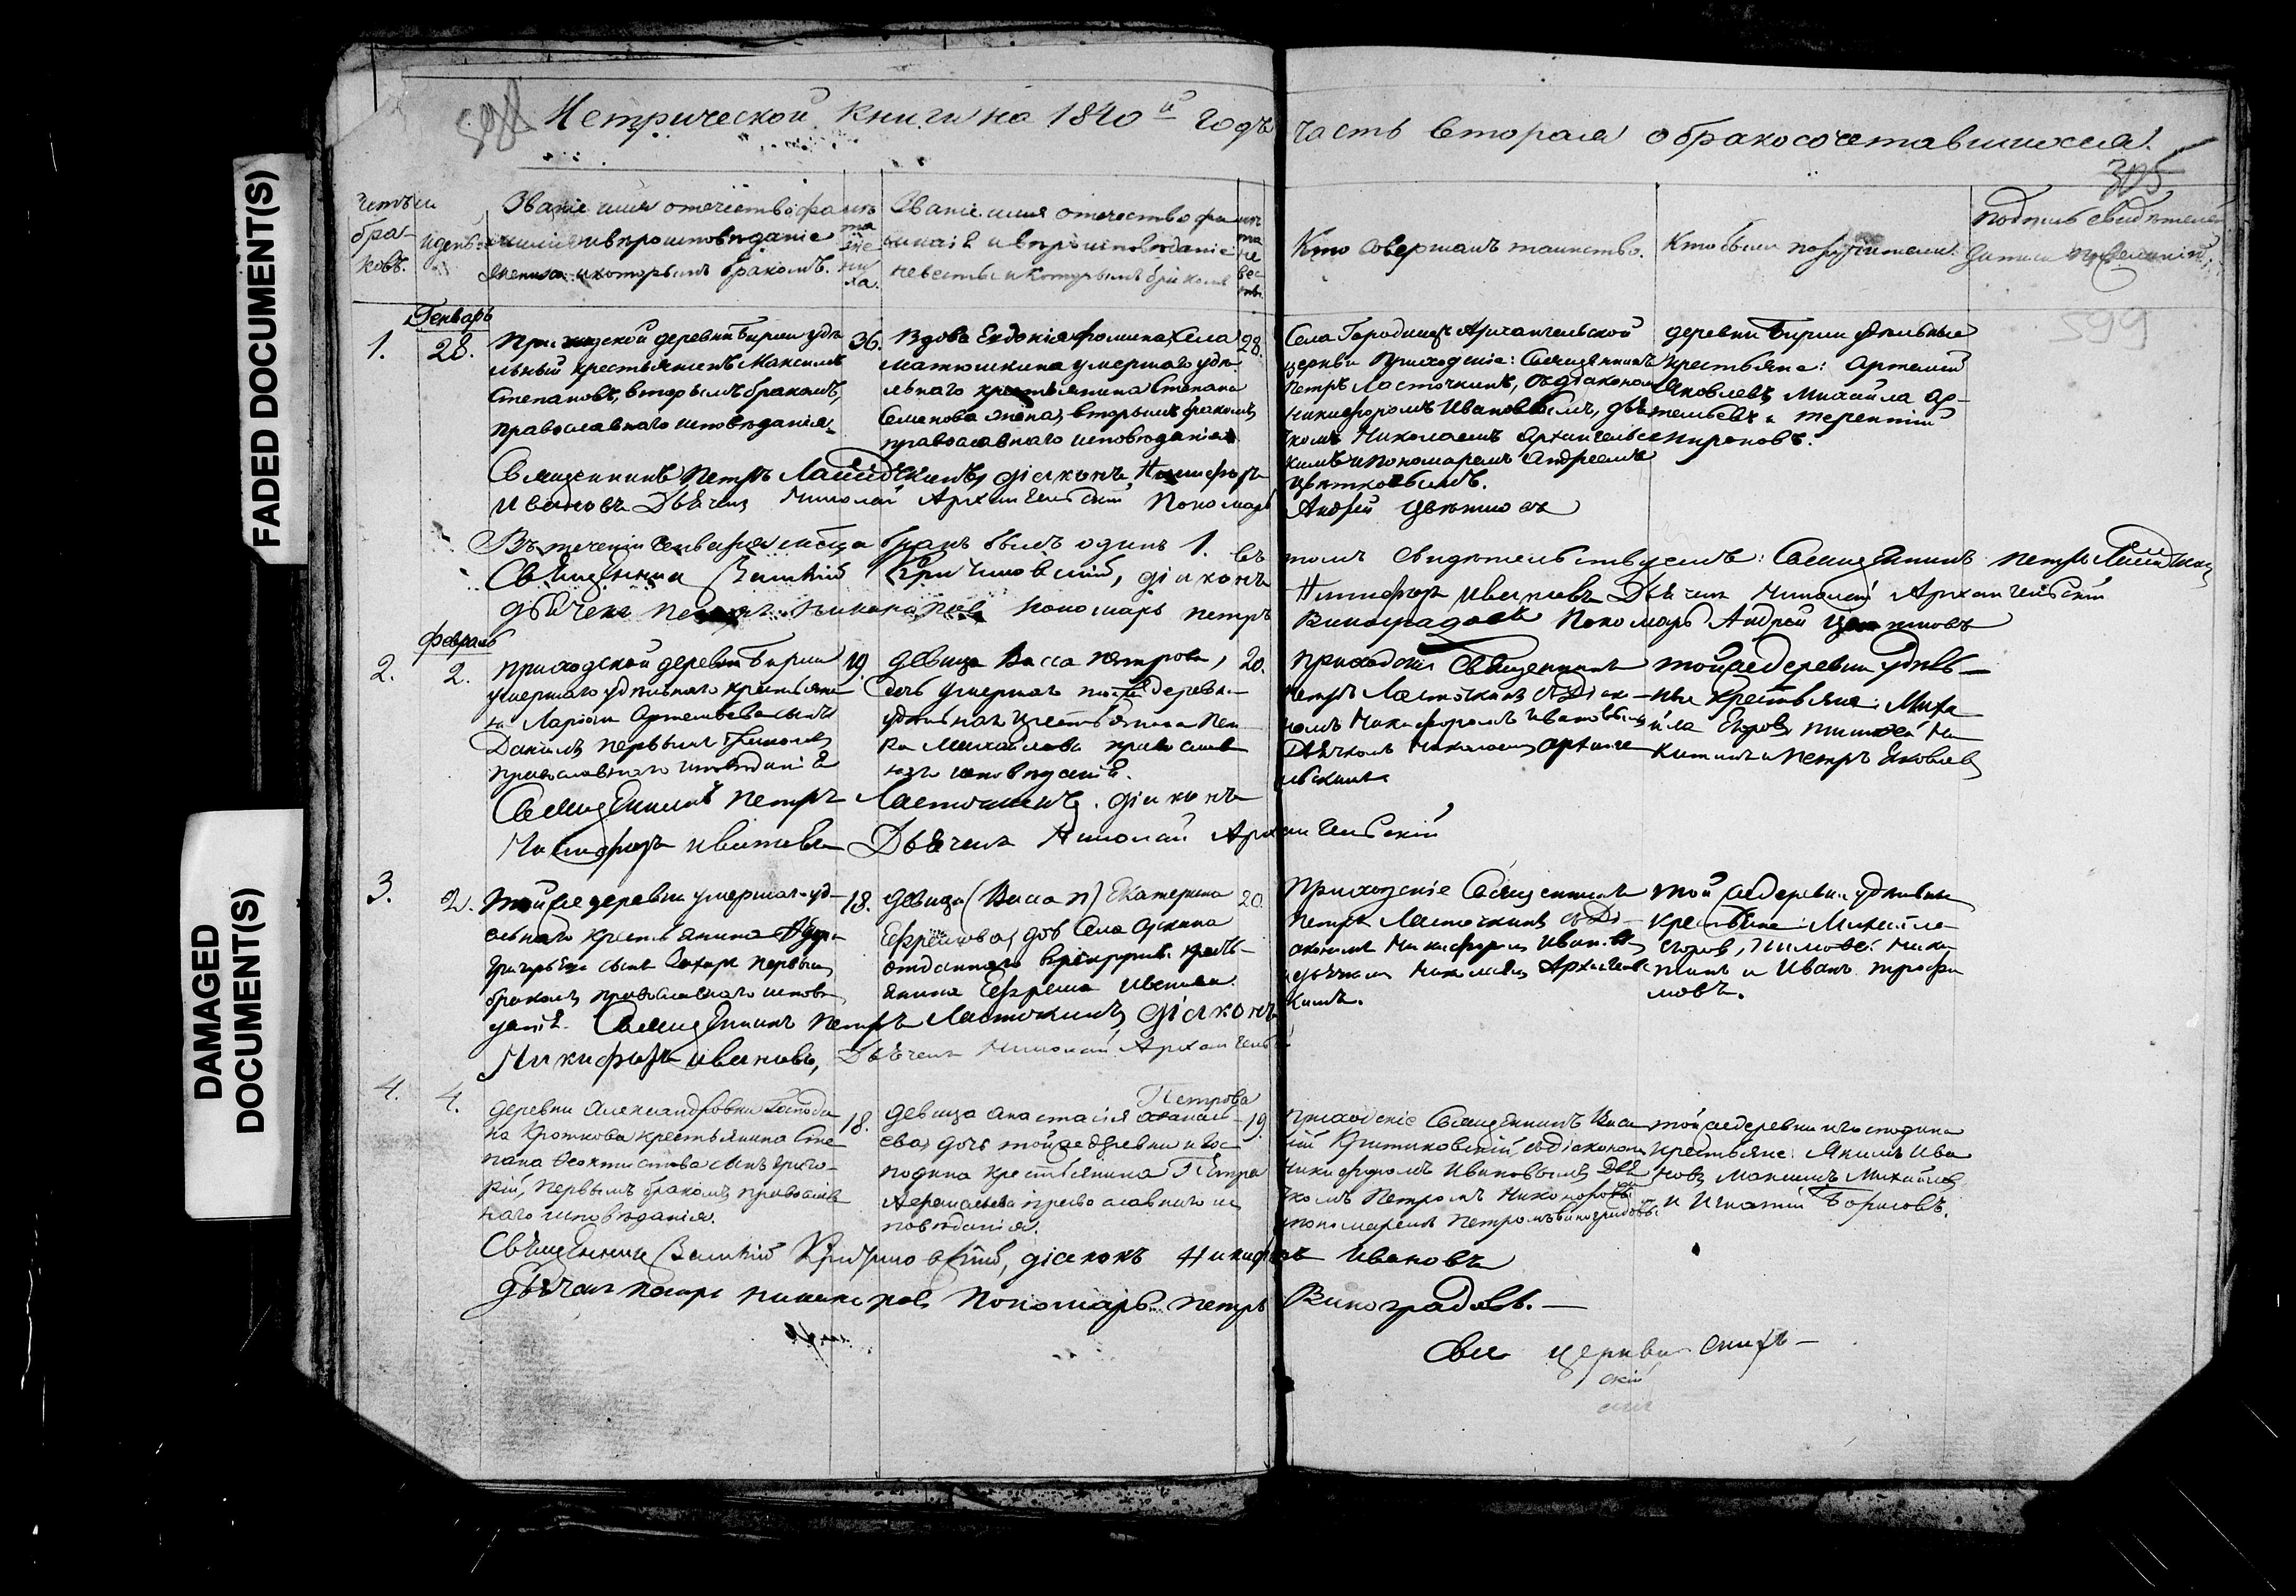 FADED DOCUMENT(S)
DAMAGED
DOCUMENT(S)
598
Метрической книги на 1840й годъ часть вторая о бракосочетавшихся.
305
599
Четъ и
бра-
ковъ.
день
Званіе имя отечество фа-
милія и вѣроисповѣданіе
жениха и которымъ бракомъ.
лѣ
та
же
ни
ха.
Званіе имя отечество фа
милія и вѣроисповѣданіе
невесты и которымъ бракомъ
лѣ
та
не
вес
ты.
Кто совершалъ таинство.
Кто были поручители.
Подпись свидѣтелей
Генварь
1.
28.
Приходской деревни Бирли удѣ
льный крестьянинъ Максимъ
Степановъ, вторымъ бракомъ,
православнаго исповѣданія.
36.
Вдова Евдокія Фомина села
Матюшкина умершаго удѣ
льнаго крестьянина Степана
Семенова жена, вторымъ бракомъ,
православнаго исповѣданія
28.
Села Городищъ Архангельской
церкви приходскіе: Священникъ
Петръ Ласточкинъ, съ діакономъ
Никифоромъ Ивановымъ, дья
чкомъ Николаемъ Архангельс
кимъ и пономаремъ Андреемъ
Цвѣтковымъ.
деревни Бирли удѣльные
крестьяне: Артемій
Яковлевъ Михайла Ар-
темьевъ и Терентій
Мироновъ.
Священникъ Петръ Ласточкинъ, діаконъ Никифоръ
Ивановъ Дьячекъ Николай Архангельскій Пономарь Андрей Цвѣтковъ
Въ теченіи генваря мѣсяца бракъ былъ одинъ 1. въ томъ свидѣтельствуемъ: Священникъ Петръ Ласточкинъ
Священникъ Василій діаконъ Никифоръ Ивановъ Дьячекъ Николай Архангельскій
дьячекъ Петръ Никаноровъ пономарь Петръ Виноградовъ Пономарь Андрей Цвѣтковъ
Февраль
2.
2.
Приходской деревни Бирли
умершаго удѣльнаго крестьяни
на Ларіона Артемьева сынъ
Данилъ первымъ бракомъ
православнаго исповѣданія
19.
девица Васса Петрова,
дочь умершаго той же деревни
удѣльнаго крестьянина Пет
ра Михайлова православ
наго исповѣданія.
20.
Приходскіе Священникъ
Петръ Ласточкинъ съ Діако-
номъ Никифоромъ Ивановымъ
Дьячкомъ Николаемъ Арханге
льскимъ
той же деревни удѣль-
ные крестьяне: Миха
йла Егоровъ Тимофей Ни
китинъ и Петръ Яковлевъ
Священникъ Петръ Ласточкинъ. діаконъ
Никифоръ Ивановъ Дьячекъ Николай Архангельскій
3.
2.
Той же деревни умершаго уд-
ельнаго крестьянина
Григорьева сынъ Захаръ первымъ
бракомъ православнаго исповѣ
данія.
18.
девица (Васса п) Екатерина
Ефремова, дочь села
отданнаго в рекруты кресть-
янина Ефрема
20.
Приходскіе Священникъ
Петръ Ласточкинъ съ Ді-
акономъ Никифоромъ Ивановымъ
дьячкомъ Николаемъ Архангельс
кимъ.
той же деревни удѣльные
крестьяне: Михайла
Егоровъ, Тимофей Ники
тинъ и Иванъ Трофи
мовъ.
Священникъ Петръ Ласточкинъ, діаконъ
Никифоръ Ивановъ, Дьячекъ Николай Архангельс
4.
4.
Деревни Александровки господи
на Кроткова крестьянина Сте
пана Феоктистова сынъ Григо-
рій, первымъ бракомъ православ
наго исповѣданія.
18.
Петрова
девица Анастасія Афанась
ева, дочь той же деревни и гос
подина крестьянина Петра
православнаго ис
повѣданія.
19.
Приходскіе Священникъ Васи
лій съ діакономъ
Никифоромъ Ивановымъ дья
чкомъ Петромъ Никаноровы
пономаремъ Петромъ Виноградовы
той же деревни и господина
крестьяне: Якимъ Ива
новъ, Максимъ Михайловъ
и Игнатій Борисовъ.
Священникъ Василій діаконъ Никифоръ Ивановъ
дьячекъ Петръ Никаноровъ Пономарь Петръ Виноградовъ.